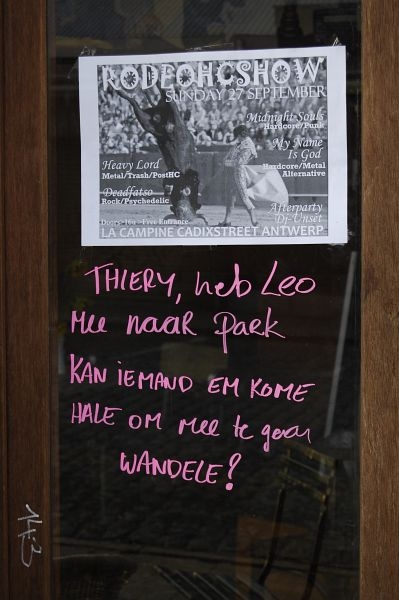 RODEOHCSHOW
SUNDAY 27 SEPTEMBER
Midnight Souls
Hardcore/Punk
My Name
Is God
Hardcore/Metal
Alternative
Heavy Lord
Metal/Trash/PostHC
Deadfatso
Rock/Psychedelic
Afterparty
Dj-Unset
Doors 16u - Free Entrance
LA CAMPINE CADIXSTREET ANTWERP
THIERY, heb Leo
Mee naar park
KAN iEMAND EM KOME
HALE OM mee te gaan
WANDELE?